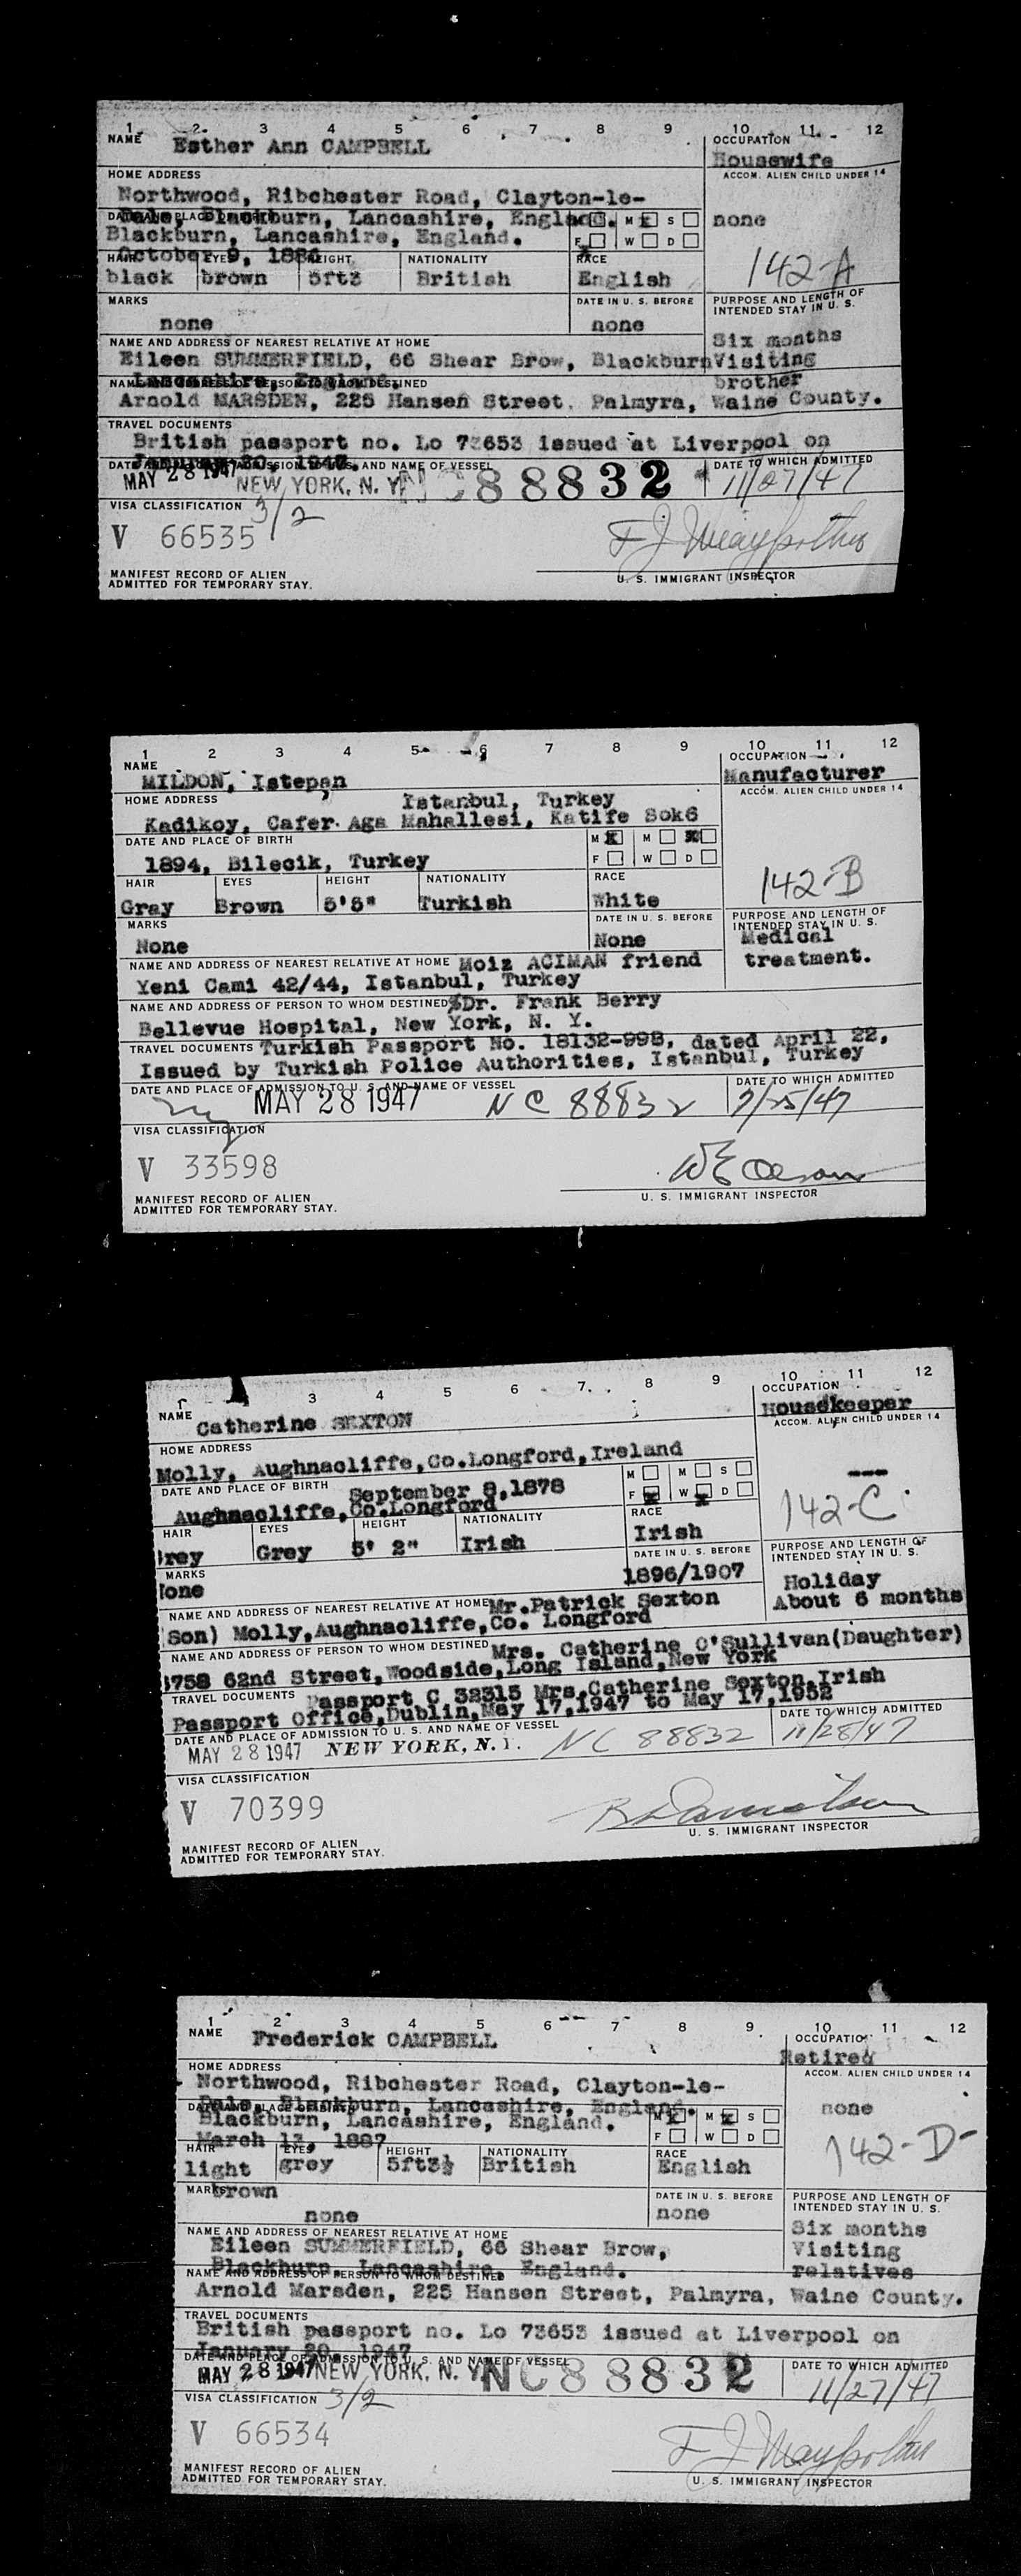 1 2 3 4 5 6 7 8 9 10 11 12
NAME Esther Ann CAMPBELL
OCCUPATION
Housewife
HOME ADDRESS
ACCOM. ALIEN CHILD UNDER 14
Northwood, Ribchester Road, Clayton-le-
Dale, Blackburn, Lancashire, England. M S none
Blackburn, Lancashire, England. F W D
October 9,
142-A
HAIR EYES HEIGHT NATIONALITY RACE
black brown 5ft3 British English
MARKS DATE IN U. S. BEFORE PURPOSE AND LENGTH OF INTENDED STAY IN U. S.
none none
NAME AND ADDRESS OF NEAREST RELATIVE AT HOME Six months
Eileen SUMMERFIELD, 66 Shear Brow, Blackburn Visiting
Lancashire, England. brother
Arnold MARSDEN, 225 Hansen Street, Palmyra, Waine County.
TRAVEL DOCUMENTS
British passport no. Lo 73653 issued at Liverpool on
January 20, 1947.
DATE AND PLACE OF ADMISSION TO U. S. AND NAME OF VESSEL DATE TO WHICH ADMITTED
MAY 28 1947 NEW YORK, N. Y. NC 88832 11/27/47
VISA CLASSIFICATION 3/2
V 66535
U. S. IMMIGRANT INSPECTOR
MANIFEST RECORD OF ALIEN
ADMITTED FOR TEMPORARY STAY.
1 2 3 4 5 6 7 8 9 10 11 12
NAME OCCUPATION
MILDON, Istepan Manufacturer
HOME ADDRESS Istanbul, Turkey ACCOM. ALIEN CHILD UNDER 14
Kadikoy, Cafer Aga Mahallesi, Katife Sok6
DATE AND PLACE OF BIRTH M M S
1894, Bilecik, Turkey F W D
142-B
HAIR EYES HEIGHT NATIONALITY RACE
Gray Brown 5'5" Turkish White
MARKS DATE IN U. S. BEFORE PURPOSE AND LENGTH OF INTENDED STAY IN U. S.
None None Medical
NAME AND ADDRESS OF NEAREST RELATIVE AT HOME Moiz ACIMAN friend treatment.
Yeni Cami 42/44, Istanbul, Turkey
NAME AND ADDRESS OF PERSON TO WHOM DESTINED %Dr. Frank Berry
Bellevue Hospital, New York, N. Y.
TRAVEL DOCUMENTS Turkish Passport No. 18132-998, dated April 22,
Issued by Turkish Police Authorities, Istanbul, Turkey
DATE AND PLACE OF ADMISSION TO U. S. AND NAME OF VESSEL DATE TO WHICH ADMITTED
MAY 28 1947 NC 88832 7/25/47
VISA CLASSIFICATION
V 33598
U. S. IMMIGRANT INSPECTOR
MANIFEST RECORD OF ALIEN
ADMITTED FOR TEMPORARY STAY.
3 4 5 6 7 8 9 10 11 12
NAME Catherine SEXTON
OCCUPATION
Housekeeper
HOME ADDRESS ACCOM. ALIEN CHILD UNDER 14
Molly, Aughnacliffe, Co.Longford, Ireland
DATE AND PLACE OF BIRTH September 8,1878 M M S ---
Aughnacliffe, Co.Longford F W D
142-C
HAIR EYES HEIGHT NATIONALITY RACE
Grey Grey 5' 2" Irish Irish
MARKS DATE IN U. S. BEFORE PURPOSE AND LENGTH OF INTENDED STAY IN U. S.
None 1896/1907 Holiday
NAME AND ADDRESS OF NEAREST RELATIVE AT HOME Mr.Patrick Sexton About 6 months
(Son) Molly,Aughnacliffe,Co. Longford
NAME AND ADDRESS OF PERSON TO WHOM DESTINED Mrs. Catherine O'Sullivan(Daughter)
758 62nd Street,Woodside,Long Island,New York
TRAVEL DOCUMENTS Passport C 32315 Mrs.Catherine Sexton,Irish
Passport Office,Dublin,May 17,1947 to May 17,1952
DATE AND PLACE OF ADMISSION TO U. S. AND NAME OF VESSEL DATE TO WHICH ADMITTED
MAY 28 1947 NEW YORK, N. Y. NC 88832 11/28/47
VISA CLASSIFICATION
V 70399
U. S. IMMIGRANT INSPECTOR
MANIFEST RECORD OF ALIEN
ADMITTED FOR TEMPORARY STAY.
1 2 3 4 5 6 7 8 9 10 11 12
NAME Frederick CAMPBELL
OCCUPATION
Retired
HOME ADDRESS ACCOM. ALIEN CHILD UNDER 14
Northwood, Ribchester Road, Clayton-le-
Dale, Blackburn, Lancashire, England. none
Blackburn, Lancashire, England. M M S
March 13, 1887 F W D
142-D-
HAIR EYES HEIGHT NATIONALITY RACE
light grey 5ft3½ British English
MARKS brown DATE IN U. S. BEFORE PURPOSE AND LENGTH OF INTENDED STAY IN U. S.
none none
NAME AND ADDRESS OF NEAREST RELATIVE AT HOME Six months
Eileen SUMMERFIELD, 66 Shear Brow, Visiting
Blackburn, Lancashire, England. relatives
NAME AND ADDRESS OF PERSON TO WHOM DESTINED
Arnold Marsden, 225 Hansen Street, Palmyra, Waine County.
TRAVEL DOCUMENTS
British passport no. Lo 73653 issued at Liverpool on
January 20, 1947
DATE AND PLACE OF ADMISSION TO U. S. AND NAME OF VESSEL DATE TO WHICH ADMITTED
MAY 28 1947 NEW YORK, N. Y. NC88832 11/27/47
VISA CLASSIFICATION 3/2
V 66534
U. S. IMMIGRANT INSPECTOR
MANIFEST RECORD OF ALIEN
ADMITTED FOR TEMPORARY STAY.